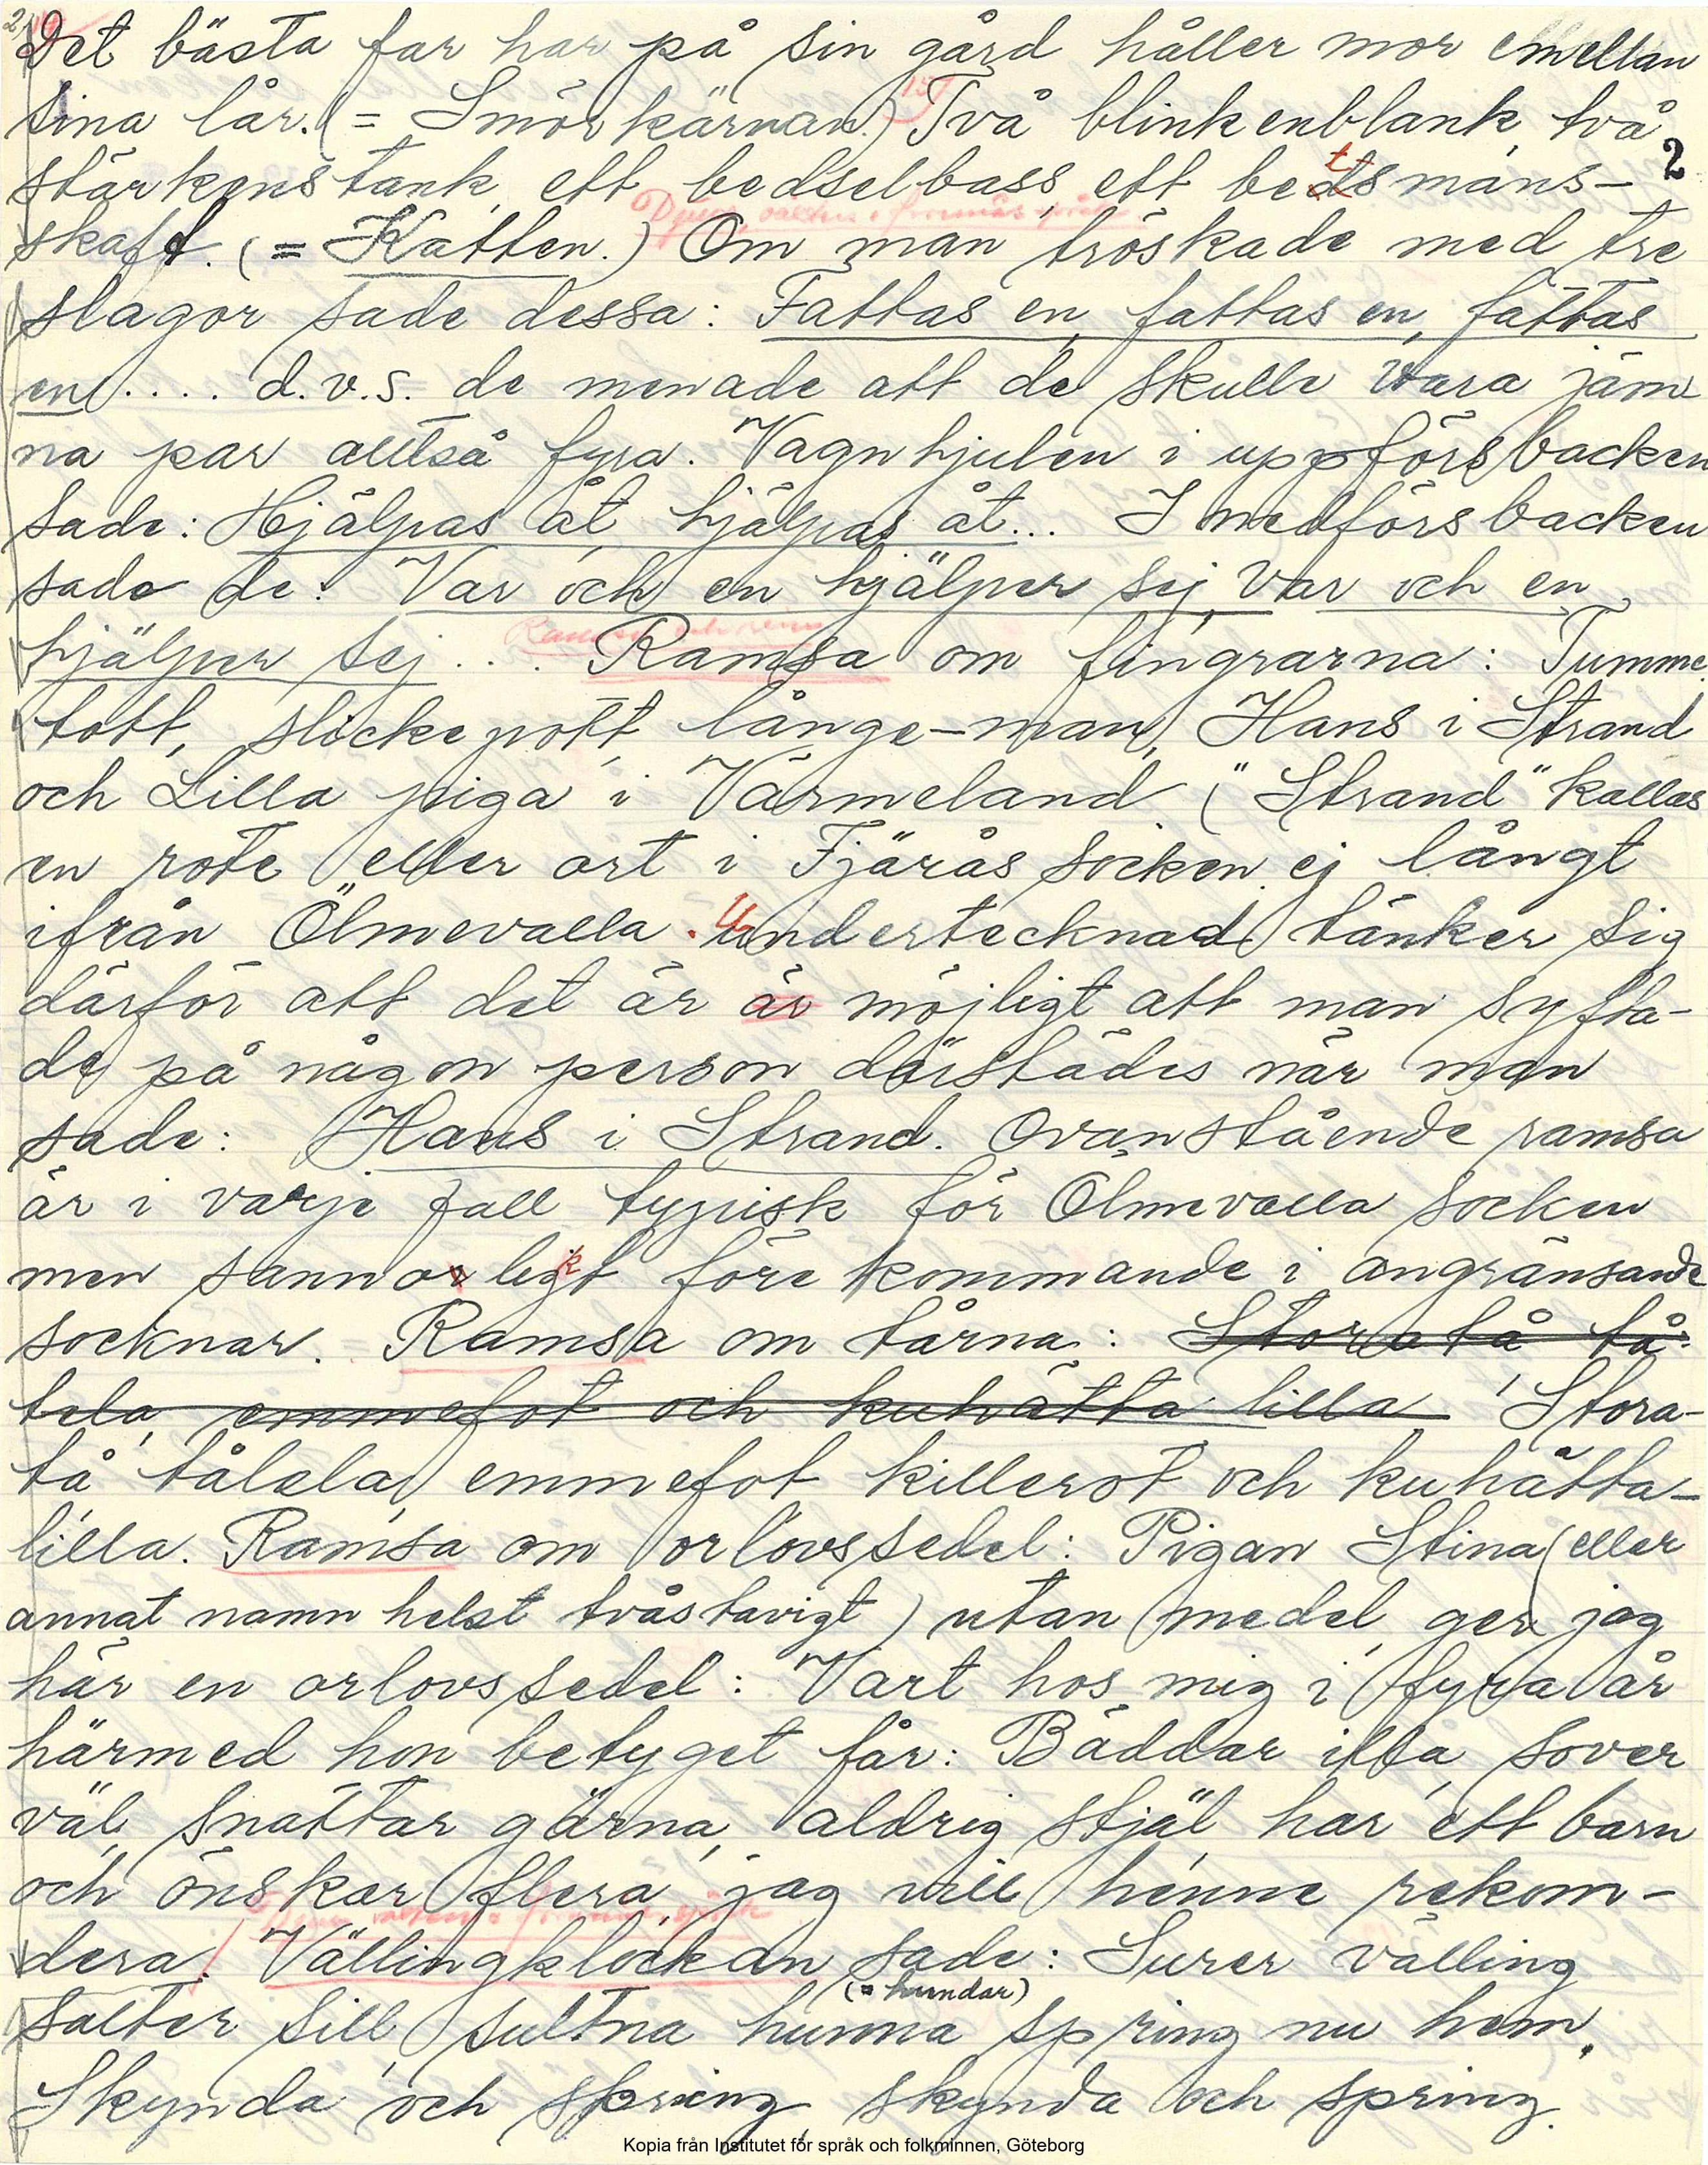 Det bästa far har på sin gård håller mor emellan
sina lår. (= Smörkärnan.) Två blinkenblank, två
stärkenstank, ett bedselbass, ett betsmans-
skaft. (= Katten.) Om man tröskade med tre
slagor sade dessa: Fattas en, fattas en, fattas
en .... d.v.s. de menade att de skulle vara jäm
na par alltså fyra. Vagnhjulen i uppförsbacken
sade: Hjälpas åt, hjälpas åt... I medförsbacken
sade de: Var och en hjälper sej, var och en
hjälper sej ... Ramsa om fingrarna: Tumme
tott, slickepott, långe-man, Hans i Strand
och Lilla piga i Värmeland ("Strand" kallas
en rote eller ort i Fjärås socken ej långt
ifrån Ölmevalla. Undertecknad tänker sig
därför att det är är möjligt att man syfta-
de på någon person därstädes när man
sade: Hans i Strand. Ovanstående ramsa
är i varje fall typisk för Ölmevalla socken
men sannolikt förekommande i angränsande
socknar. Ramsa om tårna: Stora tå tå-
lela, emmefot och kuhätta lilla Stora-
tå tålela, emmefot killerot och kuhätta-
lilla. Ramsa om orlovssedel: Pigan Stina (eller
annat namn helst tvåstavigt) utan medel, ger jag
här en orlovssedel: Vart hos mig i fyra år
härmed hon betyget får: Bäddar illa, sover
väl, snattar gärna, aldrig stjäl, har ett barn
och önskar flera, jag vill henne rekom-
dera. Vällingklockan sade: Surer välling
(= hundar)
salter sill, sultna hunna spring nu hem.
Skynda och spring, skynda och spring.
2
Kopia från Institutet för språk och folkminnen, Göteborg